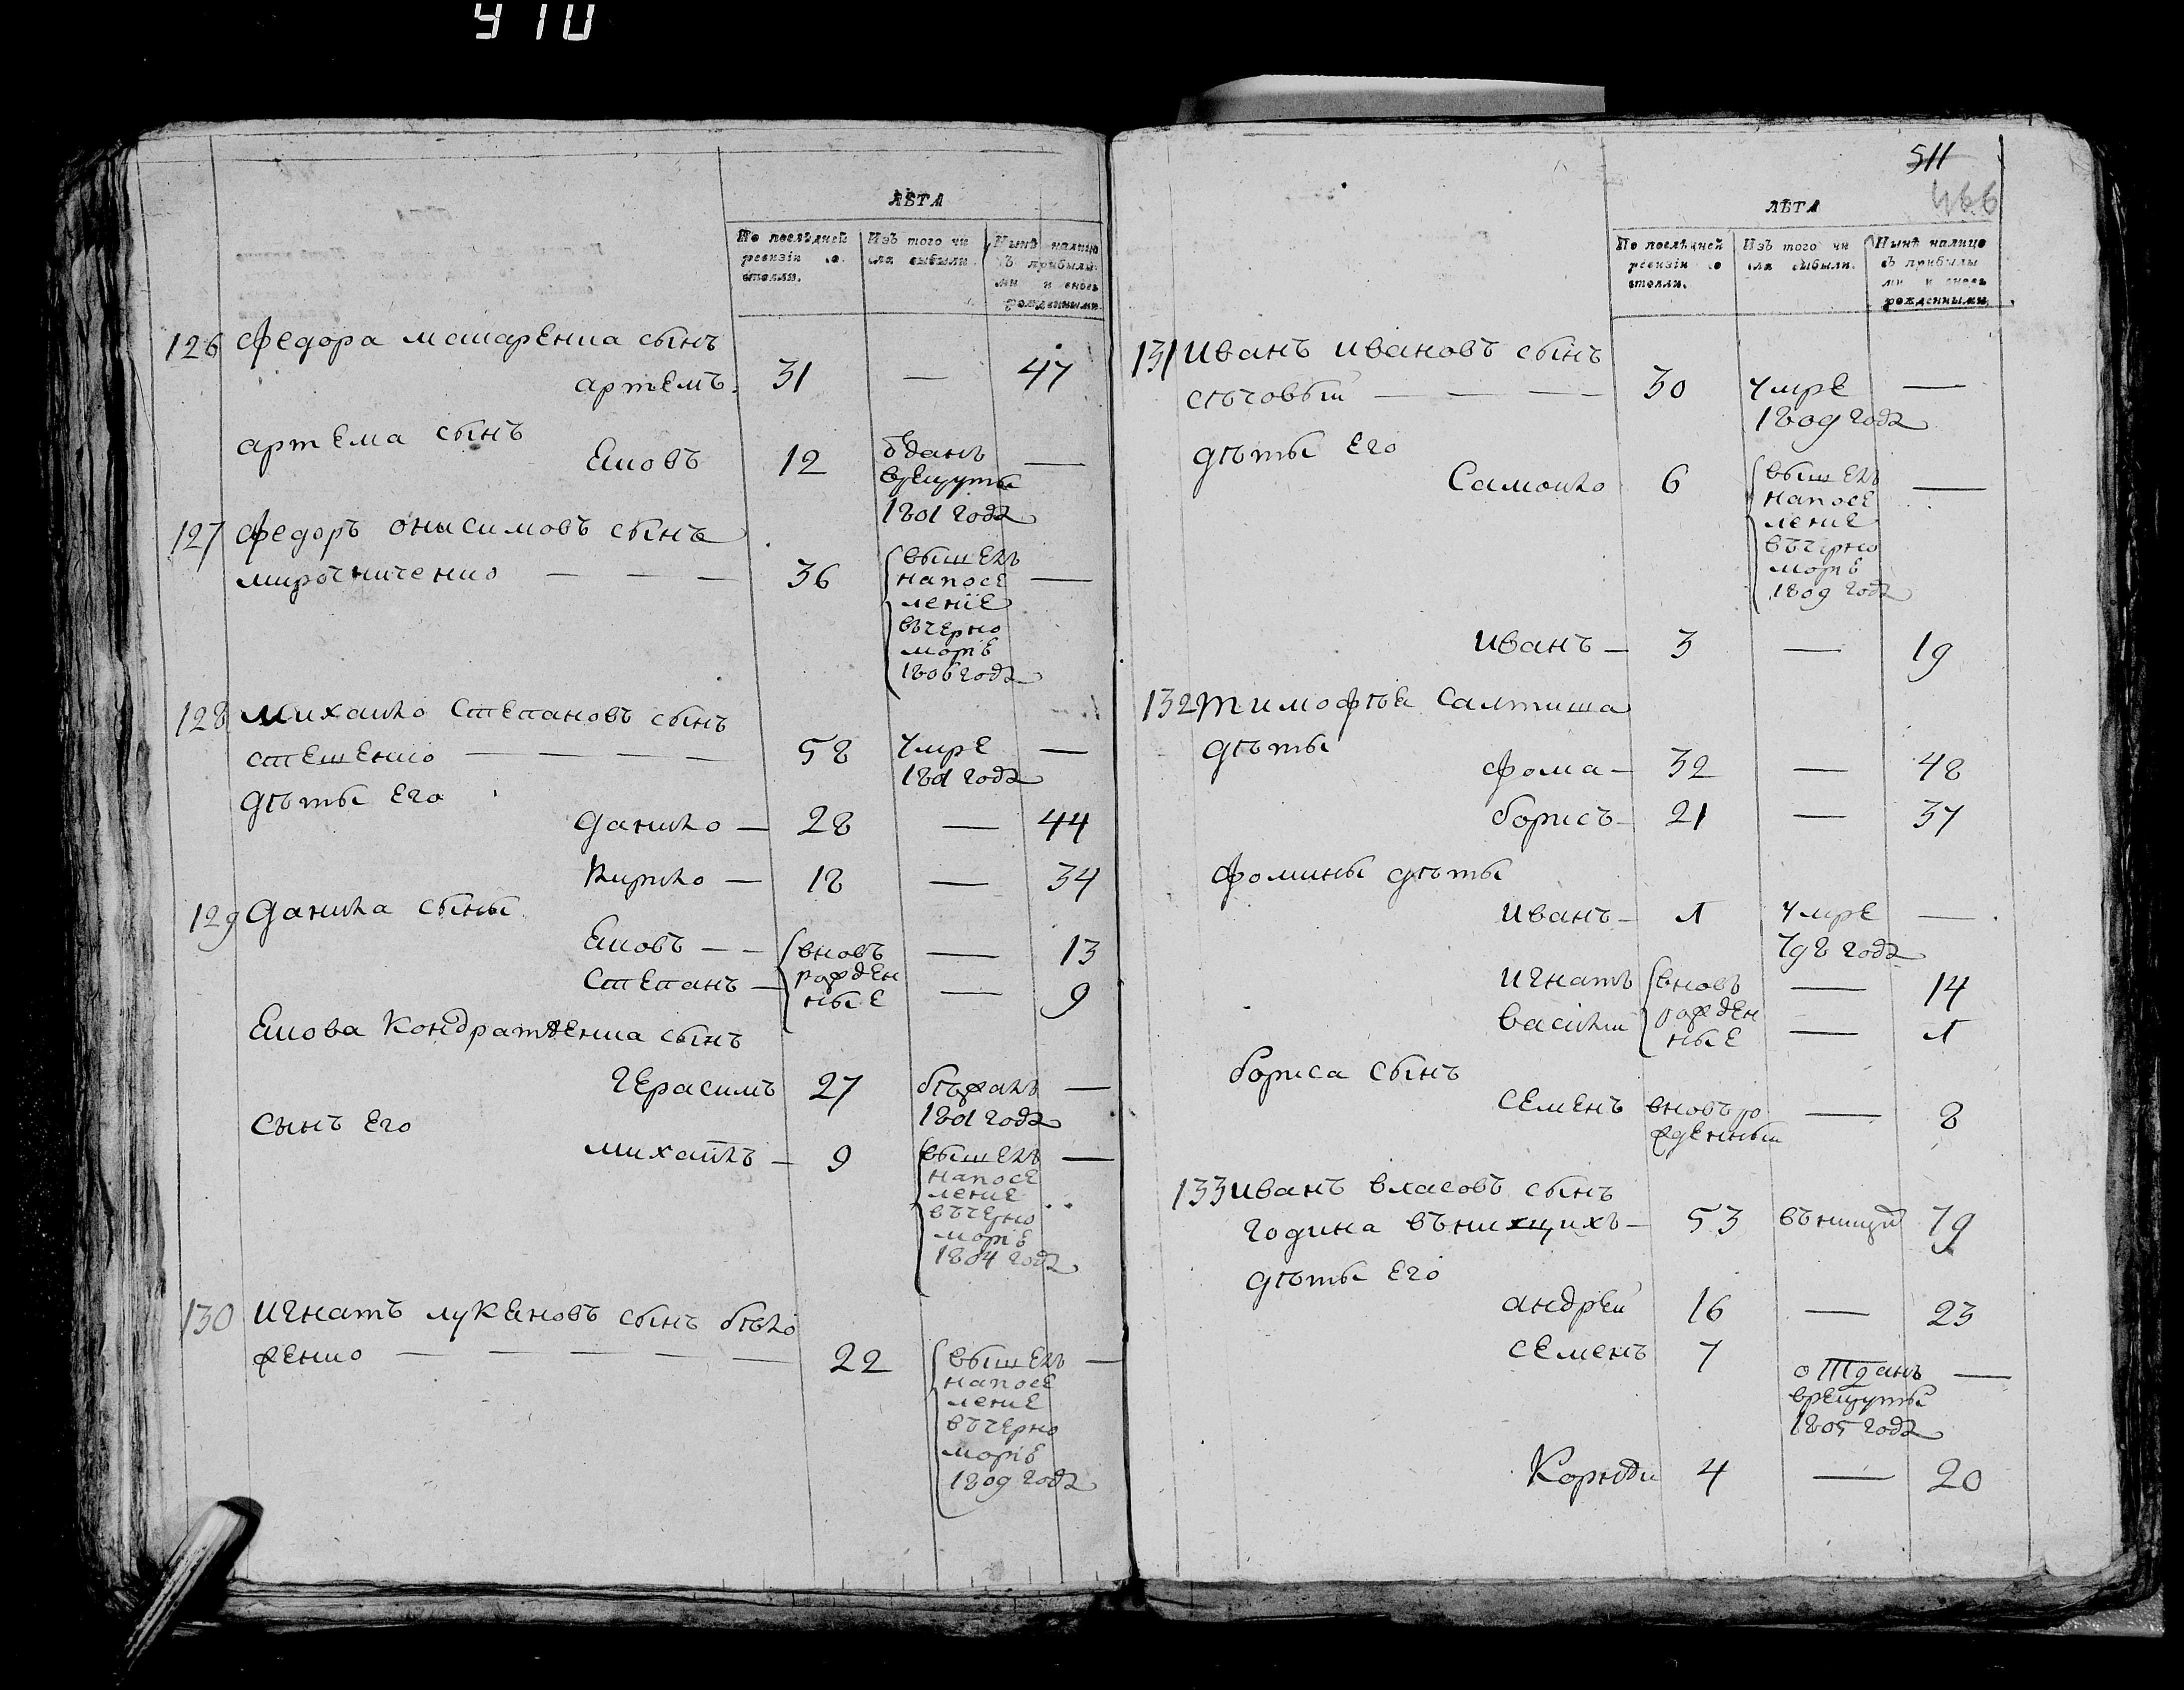 910
ЛѢТА
По послѣдней ревизіи со стояли.
Изъ того чи сла выбыли.
Нынѣ налицо съ прибылы ми и вновь рожденными.
126 Федора макаренка сынъ
артемъ. 31 — 47
артема сынъ
Яковъ 12 ѿданъ —
врекруты
1801 года
127 Федоръ онисимовъ сынъ
мирочниченко — — — 36 вышелъ —
напосе
леніе
въчерно
моріе
1806 года
128 Михайло Степановъ сынъ
стешенко — — — — 58 умре —
1801 года
дѣты Его
Данило — 28 — 44
Кирило — 18 — 34
129 Данила сыны
Яковъ — — вновь — 13
Степанъ — рожден — 9
ные
Якова Кондратенка сынъ
Герасимъ 27 бѣжалъ —
1801 года
сынъ Его
михайлъ — 9 вышелъ —
напосе
ление
въчерно
моріе
1804 года
130 Игнатъ лукяновъ сынъ бѣло
женко — — — — — 22 вышелъ —
напосе
ление
въчерно
моріе
1809 года
511
466
ЛѢТА
По послѣдней ревизіи со стояли.
Изъ того чи сла выбыли.
Нынѣ налицо съ прибылы ми и вновь рожденными.
131 Иванъ ивановъ сынъ
сѣчовый — — — 30 умре —
1809 года
дѣты Его
Самойло 6 вышелъ —
напосе
ление
въчерно
моріе
1809 года
Иванъ — 3 — 19
132 Тимофѣя Салтиша
дѣты
фома — 32 — 48
борисъ — 21 — 37
фомины дѣты
Иванъ — 1 умре —
798 года
Игнатъ вновь — 14
василий рожден — 1
ные
бориса сынъ
Семенъ вновь ро — 8
жденный
133 Иванъ власовъ сынъ
година вънищихъ — 53 въ нищий 79
дѣты Его
андрей 16 — 23
Семенъ 7 отданъ —
врекруты
1805 года
Корнѣй 4 — 20